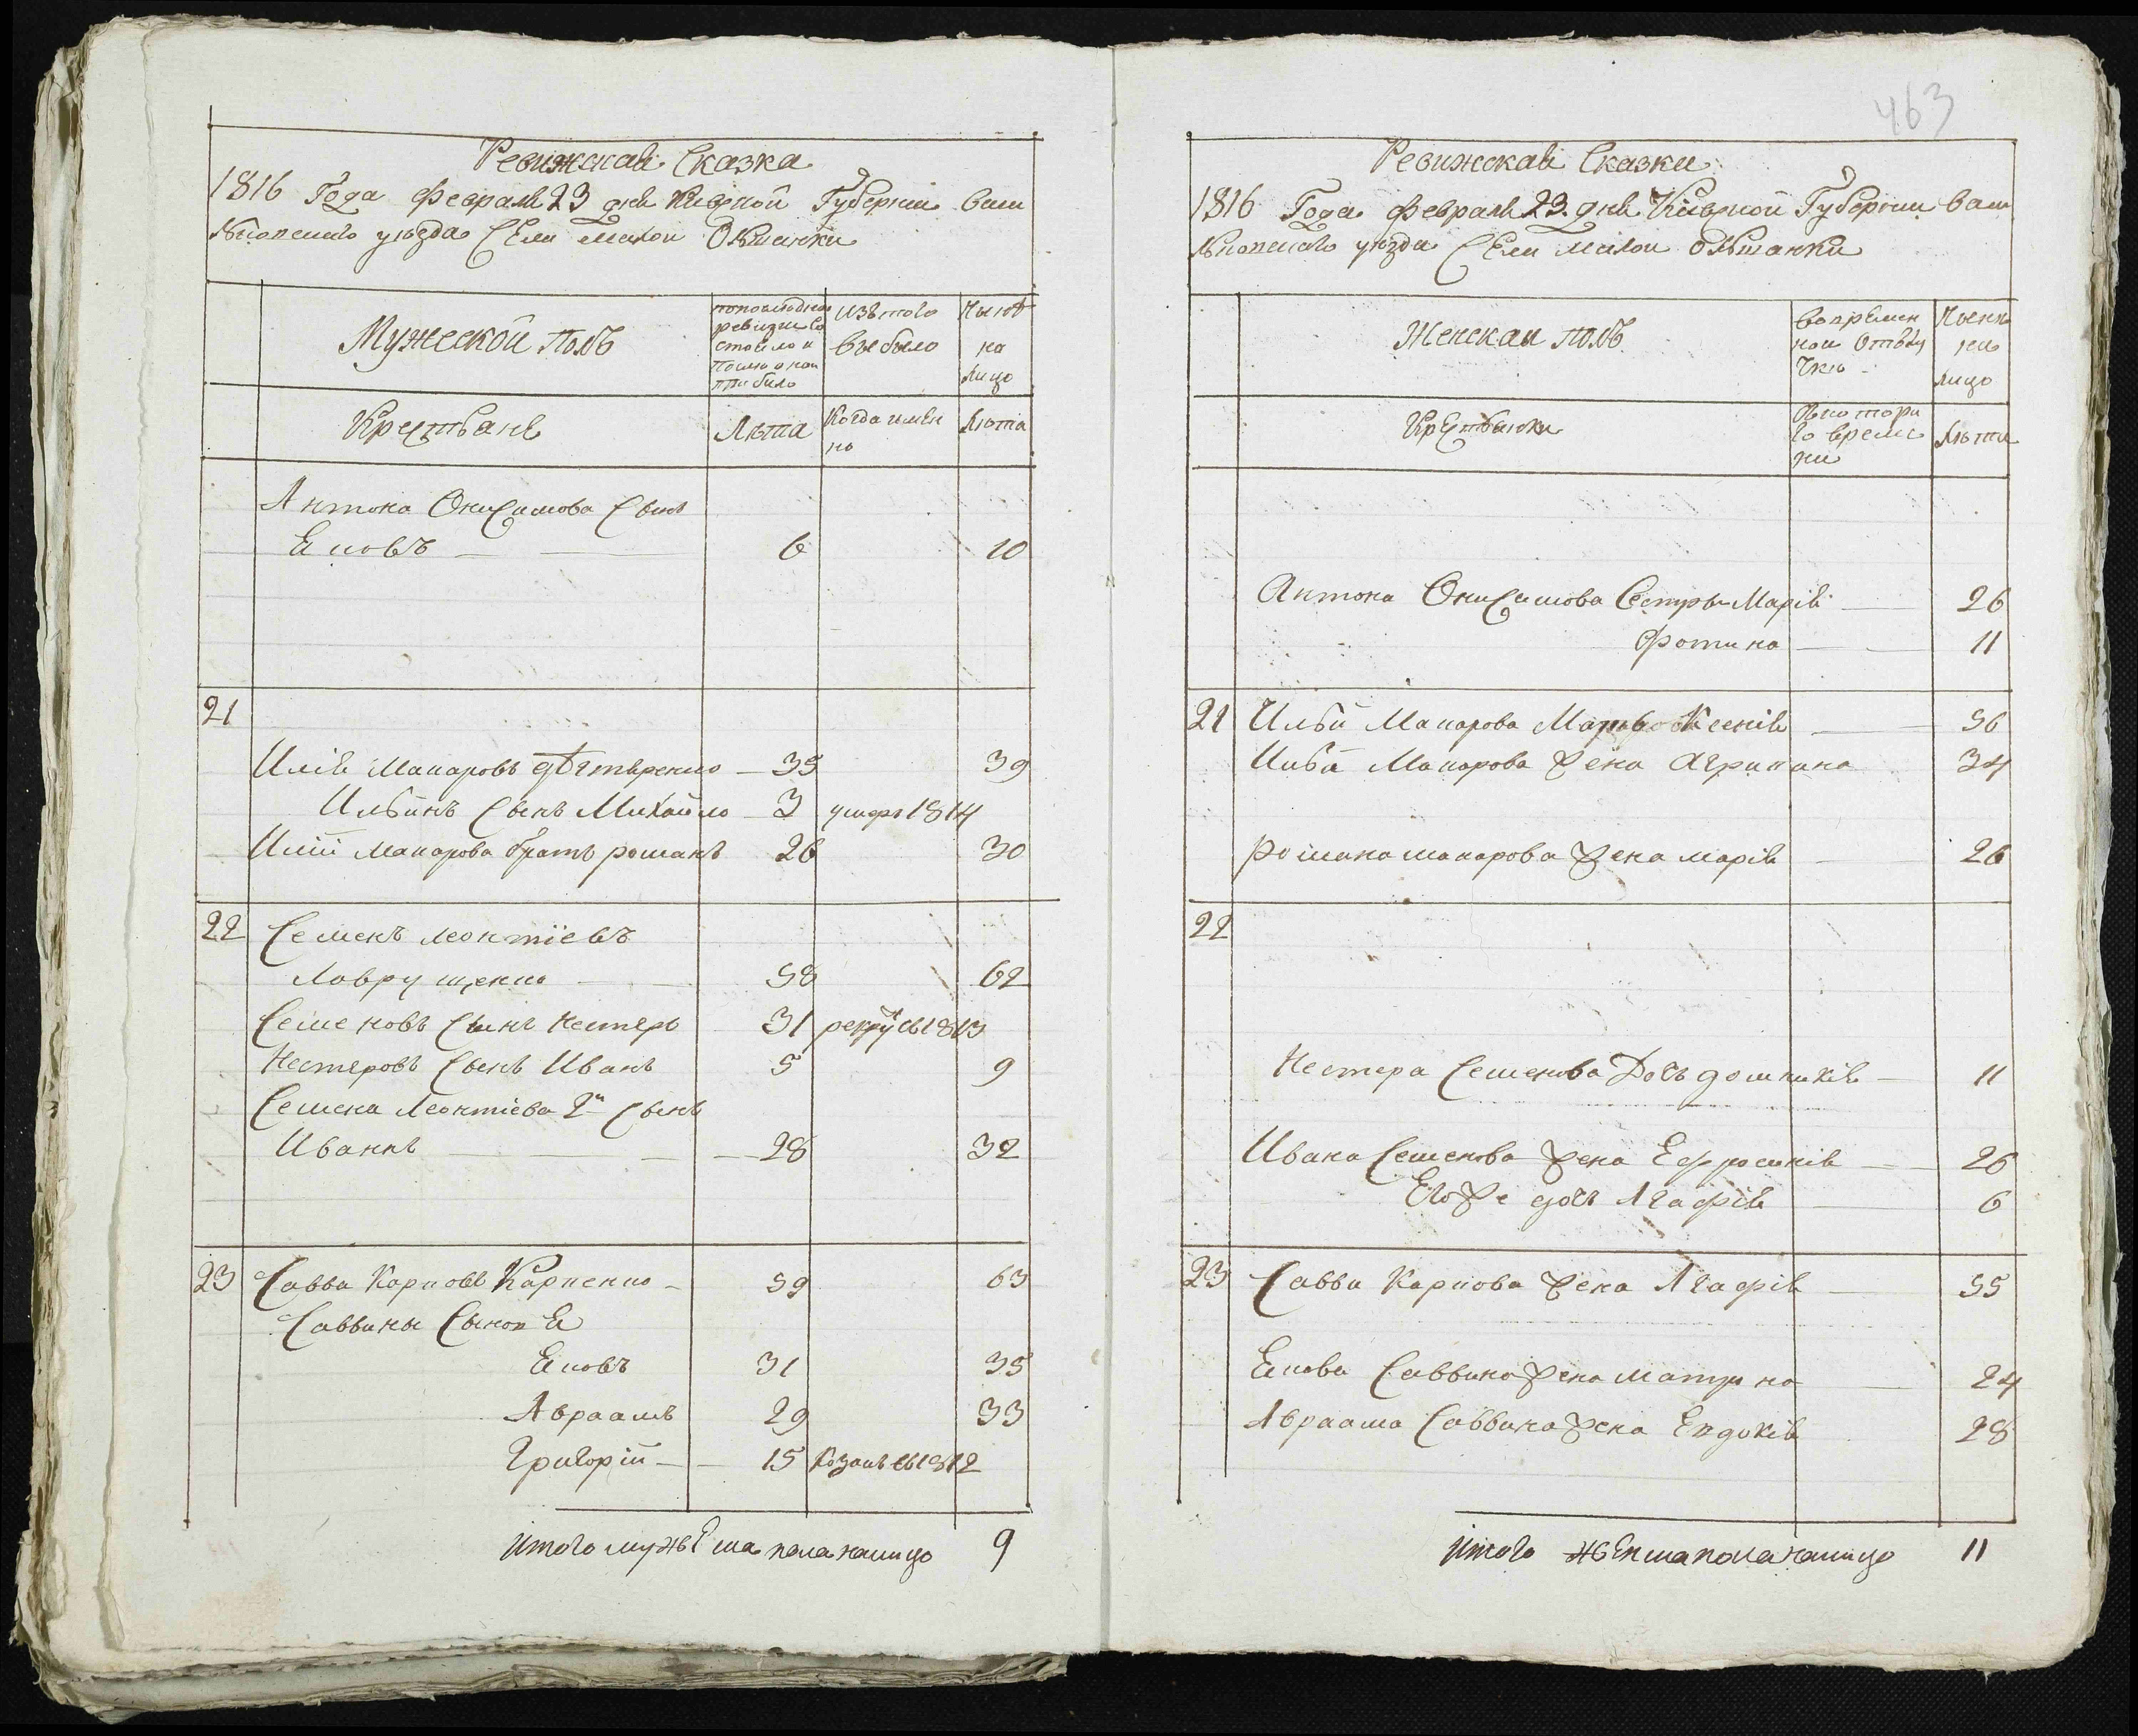 463
Ревижская Сказка
1816 Года Февраля 23 дня Киевской Губернии Васи
лковского уезда Села Малой Ольшанки
Мужеской Полъ
по последней ревизии состояло и после оной прибыло
изъ того выбыло
Ныне на лицо
Крестьяне
Лета
Когда имен
но
Лета
Антона Онисимова Сынъ
Яковъ 6 10
21
Илія Макаровъ 35 39
Ильинъ Сынъ Михайло 3 умре 1814
Иліи Макарова братъ романъ 26 30
22 Семенъ леонтіевъ
Лаврущенко 58 62
Семеновъ Сынъ Нестеръ 31 1813
Нестеровъ Сынъ Иванъ 5 9
Семена Леонтіева 2й Сынъ
Иванъ 28 32
23 Савва Карповъ Карпенко 59 63
Саввины Сыновя
Яковъ 31 35
Авраамъ 29 33
Григорій 15 1812
Итого мужеска пола налицо 9
Ревижская Сказка
1816 Года Февраля 23 дня Киевской Губернии Васи
лковского уезда Села малой Ольшанки
Женскаи полъ
Во времен
ной Отлу
чке
Ныне
на
лицо
Крестьянки
С которо
го време
ни
Лета
Антона Онисимова Сестры Марія 26
Фотина 11
21 Ильи Макарова Ксенія 56
Ильи Макарова жена Агрипина 34
Романа макарова жена марія 26
22
Нестера Семенова Дочь домникія 11
Ивана Семенова жена Ефросинія 26
Его же дочь Агафія 6
23 Саввы Карпова жена Агафія 55
Якова Саввина жена матрона 24
Авраама Саввина жена Евдокія 28
Итого женска пола налицо 11